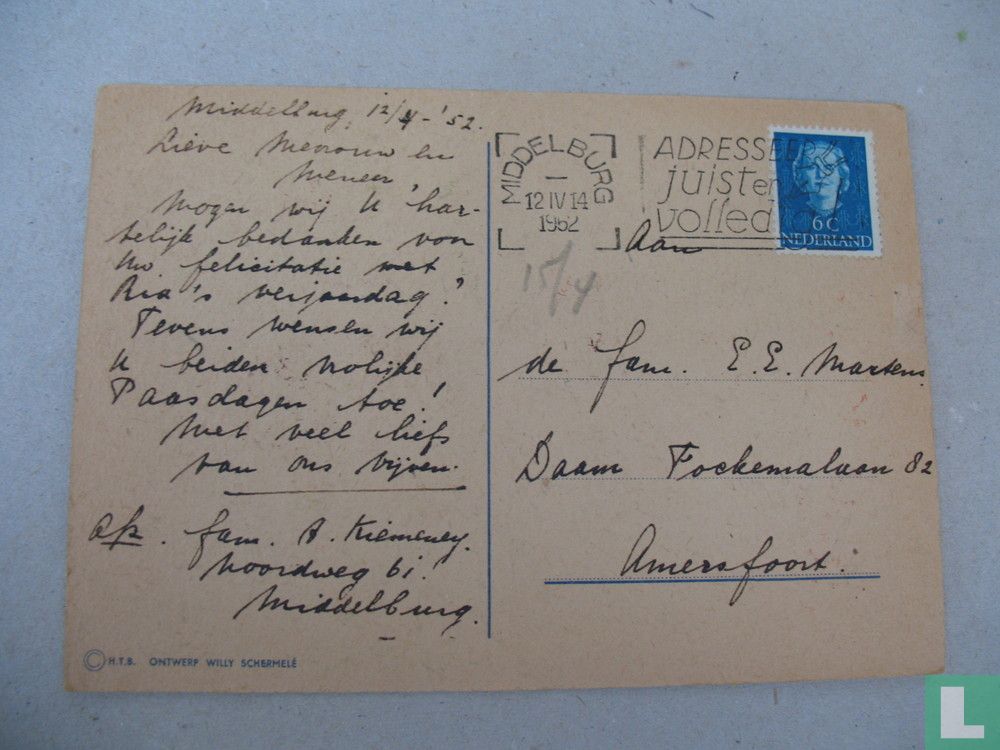 Middelburg, 12/4-'52.
Lieve Mevrouw en
Meneer,
Mogen wij U har-
telijk bedanken voor
Uw felicitatie met
Ria's verjaardag?
Tevens wensen wij
U beiden vrolijke
Paasdagen toe!
Met veel liefs
van ons vijven.
afz. fam. A. Kiemeney.
Noordweg 61.
Middelburg.
© H.T.B. ONTWERP WILLY SCHERMELÉ
MIDDELBURG
12 IV 14
1952
ADRESSEER
juist en
volledig
6 C
NEDERLAND
15/4
Aan
de fam. E.E. Martens
Daam Fockemalaan 82
Amersfoort.
L